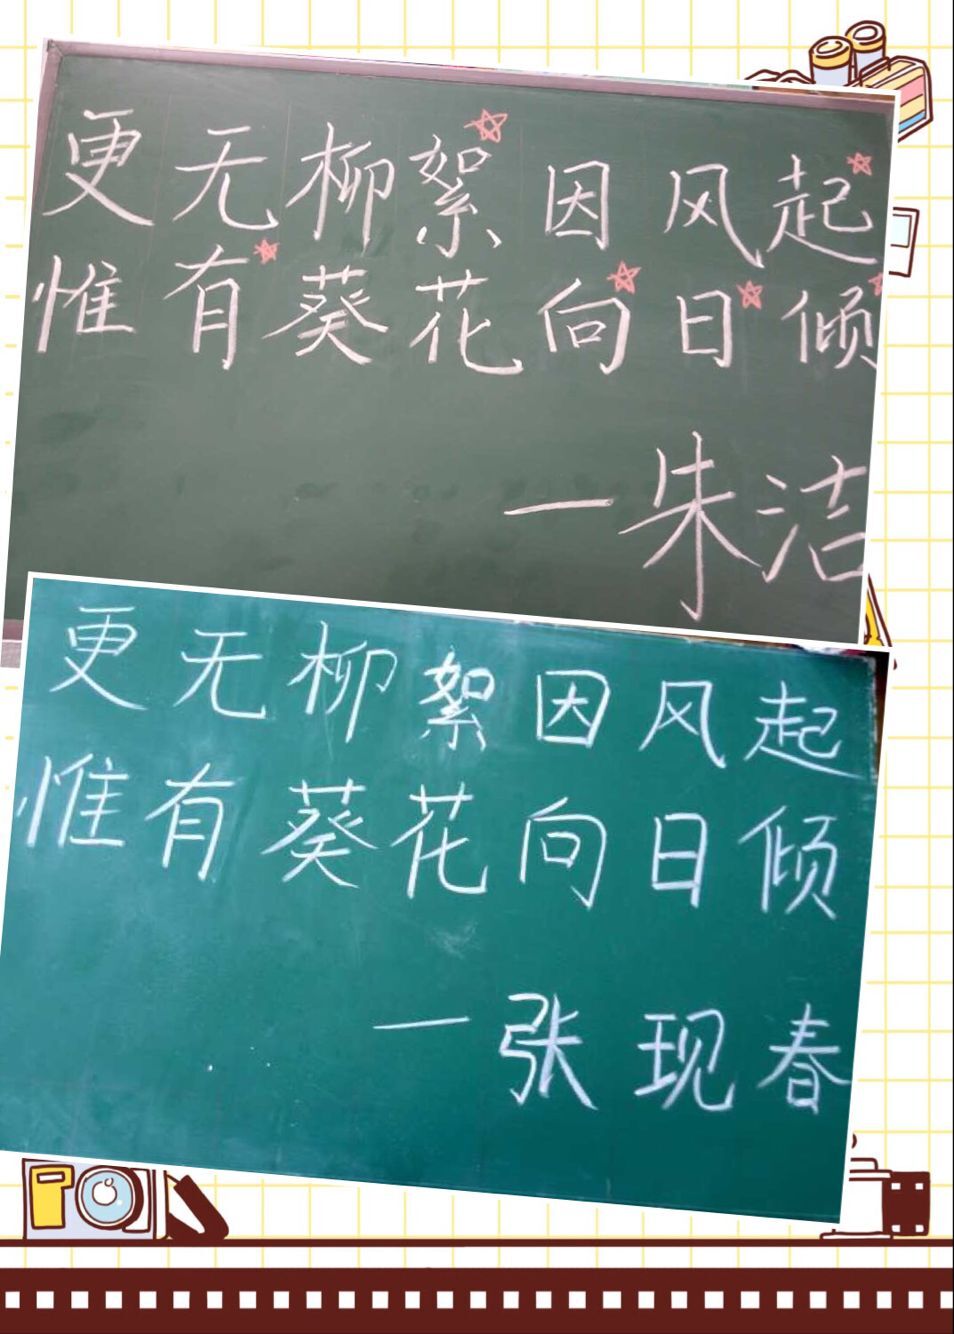 更无柳絮因风起
惟有葵花向日倾
一朱洁
更无柳絮因风起
惟有葵花向日倾
一张现春